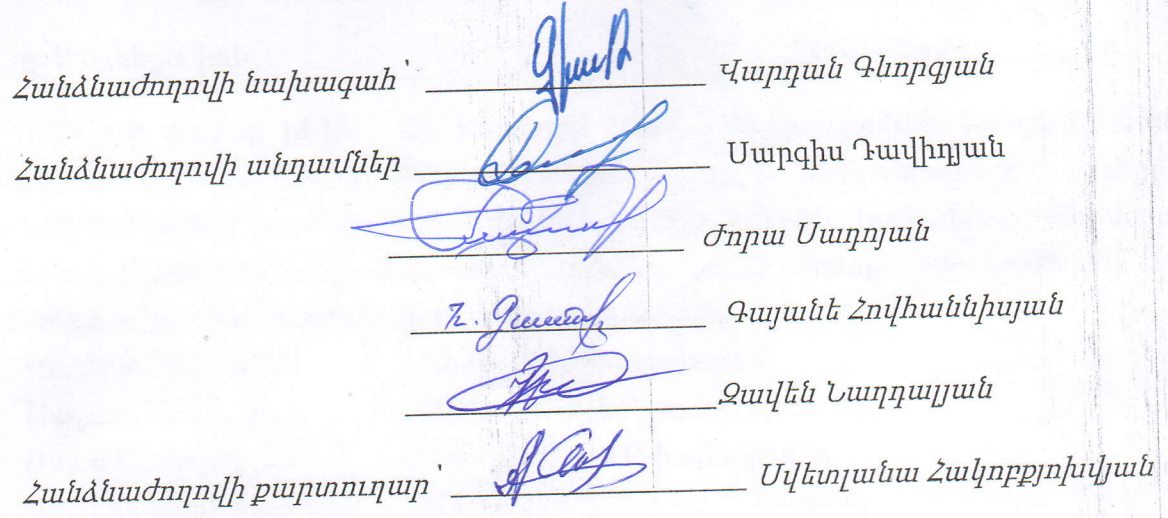 Հանձնաժողովի նախագահ՝ Վարդան Գևորգյան
Հանձնաժողովի անդամներ Սարգիս Դավիդյան
Ժորա Սադոյան
Գայանե Հովհաննիսյան
Զավեն Նաղդալյան
Հանձնաժողովի քարտուղար՝ Սվետլանա Հակոբքյոխվյան